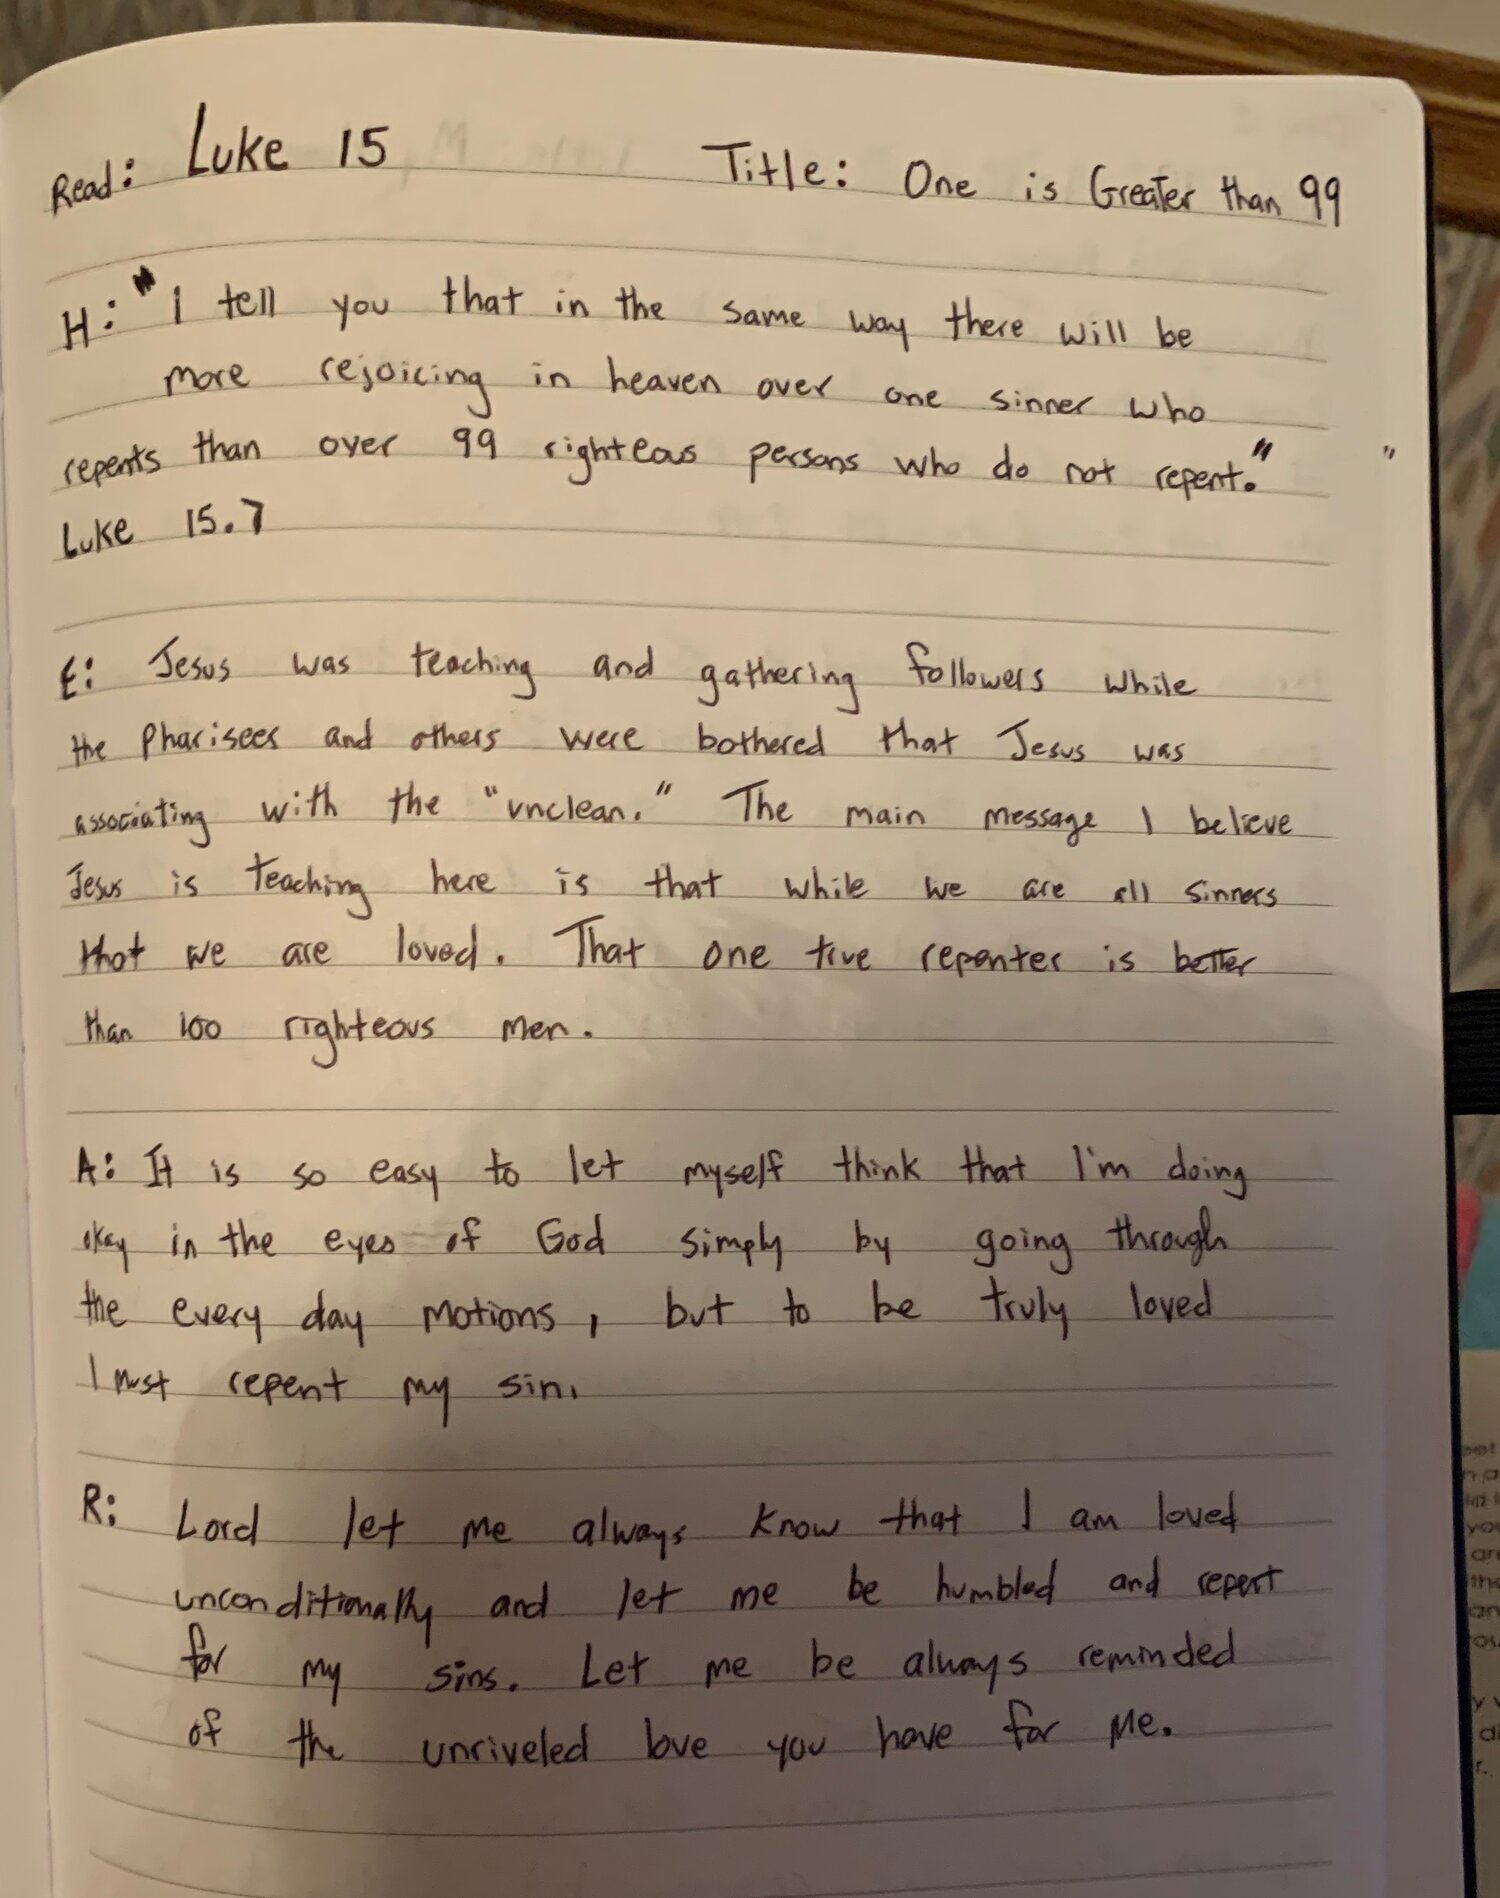 Read: Luke 15 Title: One is Greater than 99
H: "I tell you that in the same way there will be
more rejoicing in heaven over one sinner who
repents than over 99 righteous persons who do not repent."
Luke 15.7
E: Jesus was teaching and gathering followers while
the Pharisees and others were bothered that Jesus was
associating with the "unclean." The main message I believe
Jesus is teaching here is that while we are all sinners
that we are loved. That one true repenter is better
than 100 righteous men.
A: It is so easy to let myself think that I'm doing
okay in the eyes of God simply by going through
the every day motions, but to be truly loved
I must repent my sin.
R: Lord let me always know that I am loved
unconditionally and let me be humbled and repent
for my sins. Let me be always reminded
of the unriveled love you have for me.